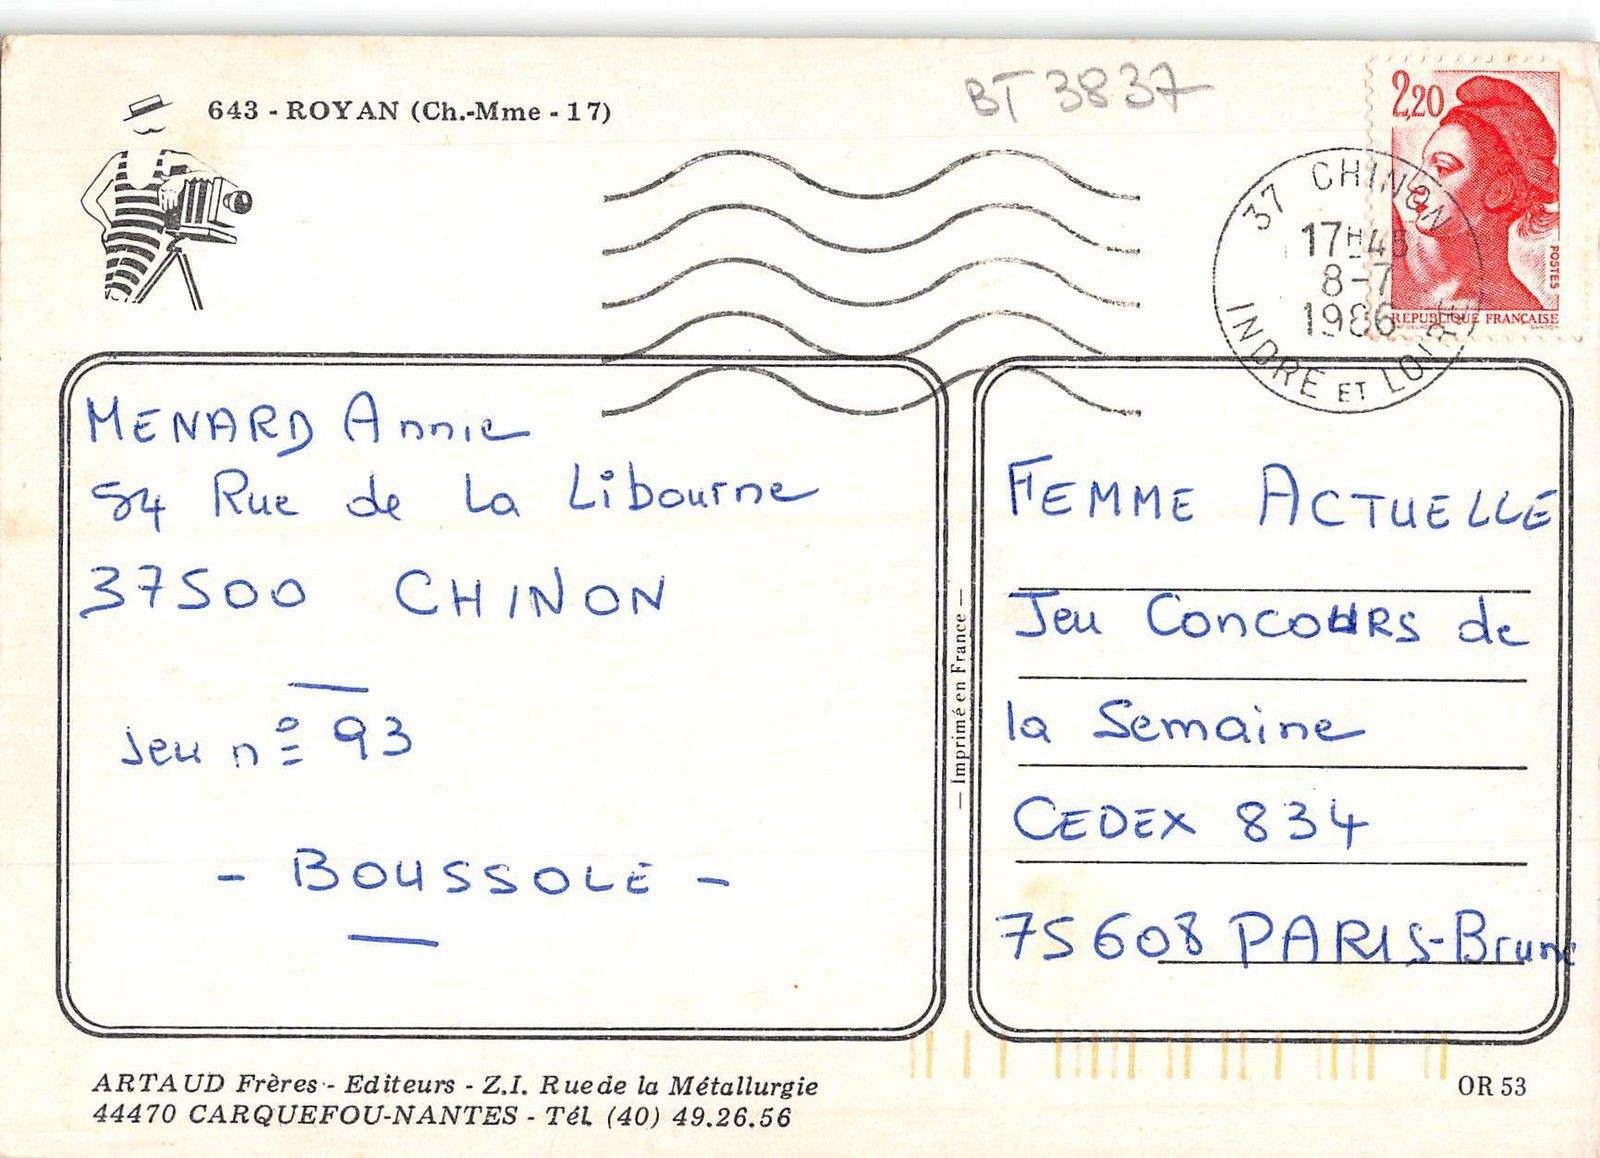 643 - ROYAN (Ch.-Mme - 17)
BT 3837
2,20
POSTES
REPUBLIQUE FRANÇAISE
37 CHINON
17H45
8-7
1986
INDRE ET LOIRE
MENARD Annie
54 Rue de La Libourne
37500 CHINON
Jeu n° 93
- BOUSSOLE -
— Imprimé en France —
FEMME ACTUELLE
Jeu CONCOURS de
la Semaine
CEDEX 834
75608 PARIS-Brune
ARTAUD Frères - Editeurs - Z.I. Rue de la Métallurgie
44470 CARQUEFOU-NANTES - Tél. (40) 49.26.56
OR 53